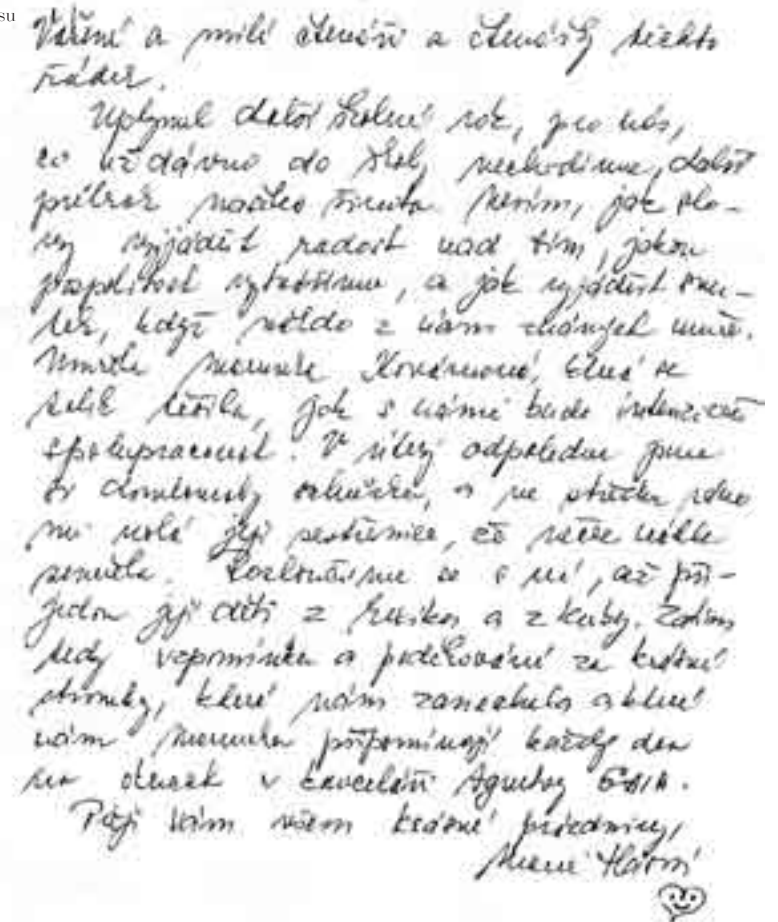 su
Vážení a milí čtenáři a čtenářky těchto
řádek.
Uplynul další školní rok, pro nás,
co už dávno do školy nechodíme, další
průběh našeho života. Nevím, jak slo-
vy vyjádřit radost nad tím, jakou
pospolitost vytváříme, a jak vyjádřit smu-
tek, když někdo z nám známých umře.
Umřela Kovárnová, která se
tolik těšila, jak s námi bude intenzivně
spolupracovat. V úterý odpoledne jsme
si domlouvaly schůzku, a ve středu ráno
mi volá její sestřenice, že v noci náhle
zemřela. Rozloučíme se s ní, až při-
jedou její děti z Mexika a z Kuby. Zatím
tedy vzpomínka a poděkování za krásné
stromky, které nám zanechala a které
nám připomínají každý den
na dvorek v kanceláři Agentury GAIA.
Přeji Vám všem krásné prázdniny,
Marie Hlavní